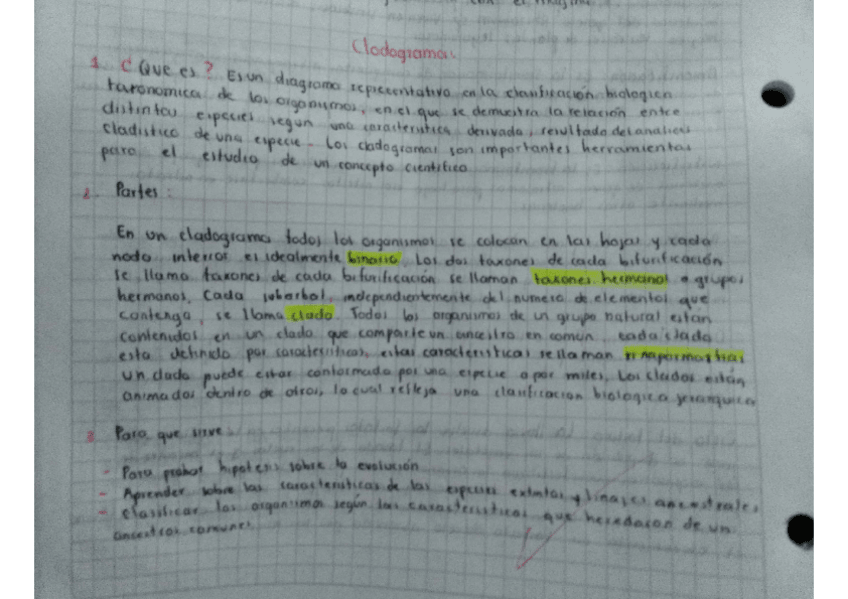 con el
Cladogramas
1. ¿Que es? Es un diagrama representativo en la clasificación biologica
taxonomica de los organismos, en el que se demuestra la relación entre
distintas especies segun una caracteristica derivada, resultado del analisis
cladistico de una especie. Los cladogramas son importantes herramientas
para el estudio de un concepto cientifico
2. Partes:
En un cladograma todos los organismos se colocan en las hojas y cada
nodo interior es idealmente binario. Los dos taxones de cada bifurificación
se llama taxones de cada bifurificación se llaman taxones hermanos o grupos
hermanos. Cada subarbol, independientemente del numero de elementos que
contenga, se llama clado. Todos los organismos de un grupo natural estan
contenidos en un clado que comparte un ancestro en comun. cada clado
esta definido por caracteristicas, estas caracteristicas se llaman
un clado puede estar conformado por una especie o por miles. Los clados están
animados dentro de otros, lo cual refleja una clasificacion biologica jerarquica
3 Para que sirve
- Para probar hipotesis sobre la evolución
- Aprender sobre las caracteristicas de las especies extintas y linajes ancestrales
- clasificar los organismos según las caracteristicas que heredaron de un
ancestros comunes